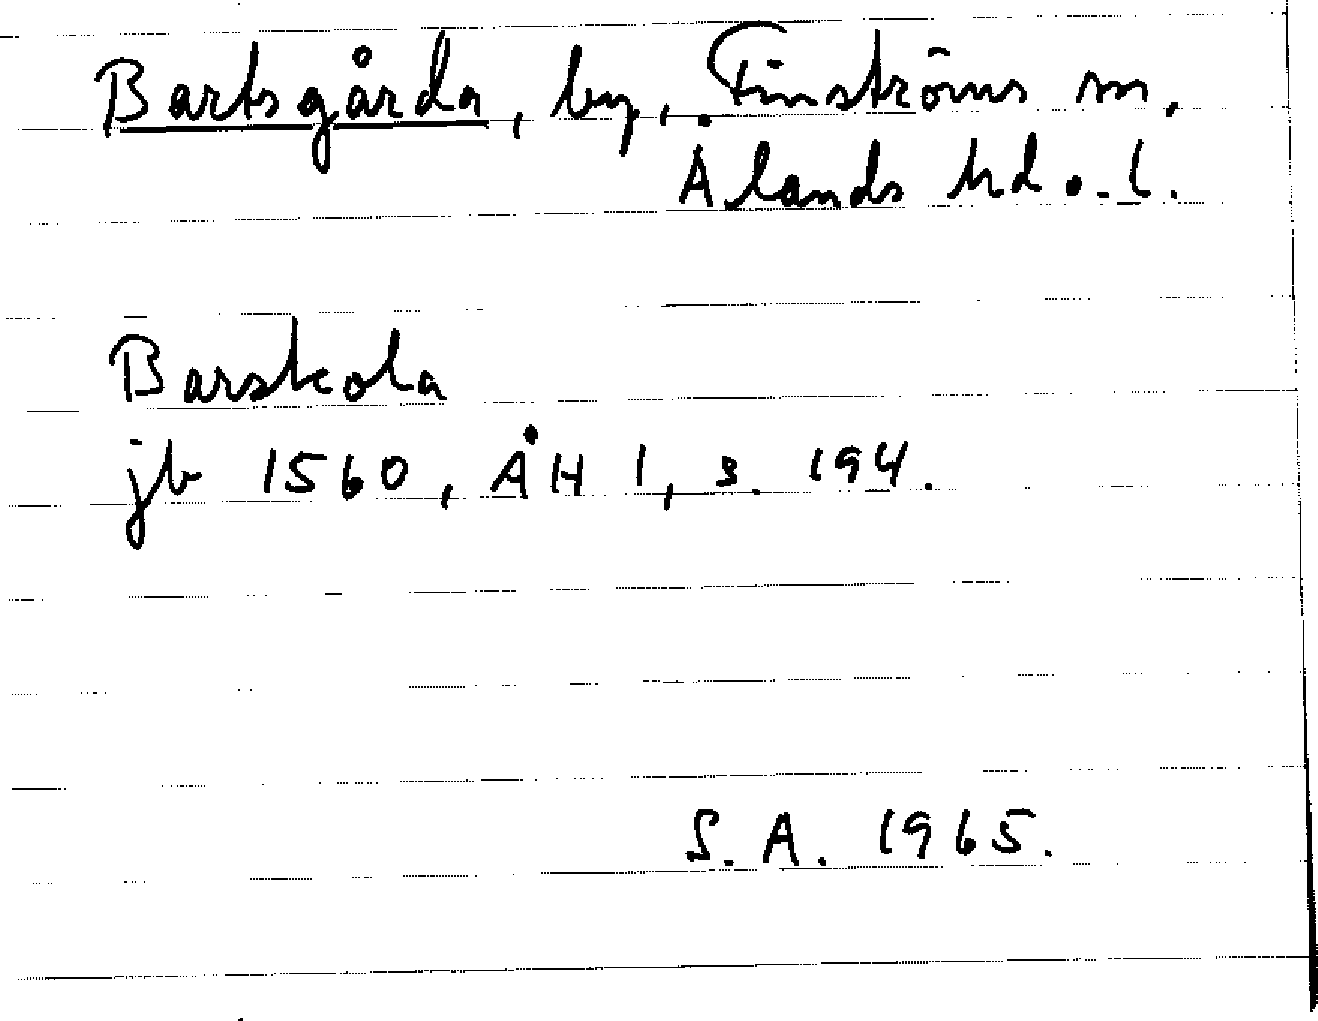 Bartsgårda, by, Finströms sn,
Ålands hd o. l.
Barskola
jb 1560, ÅH 1, s. 194.
S. A. 1965.